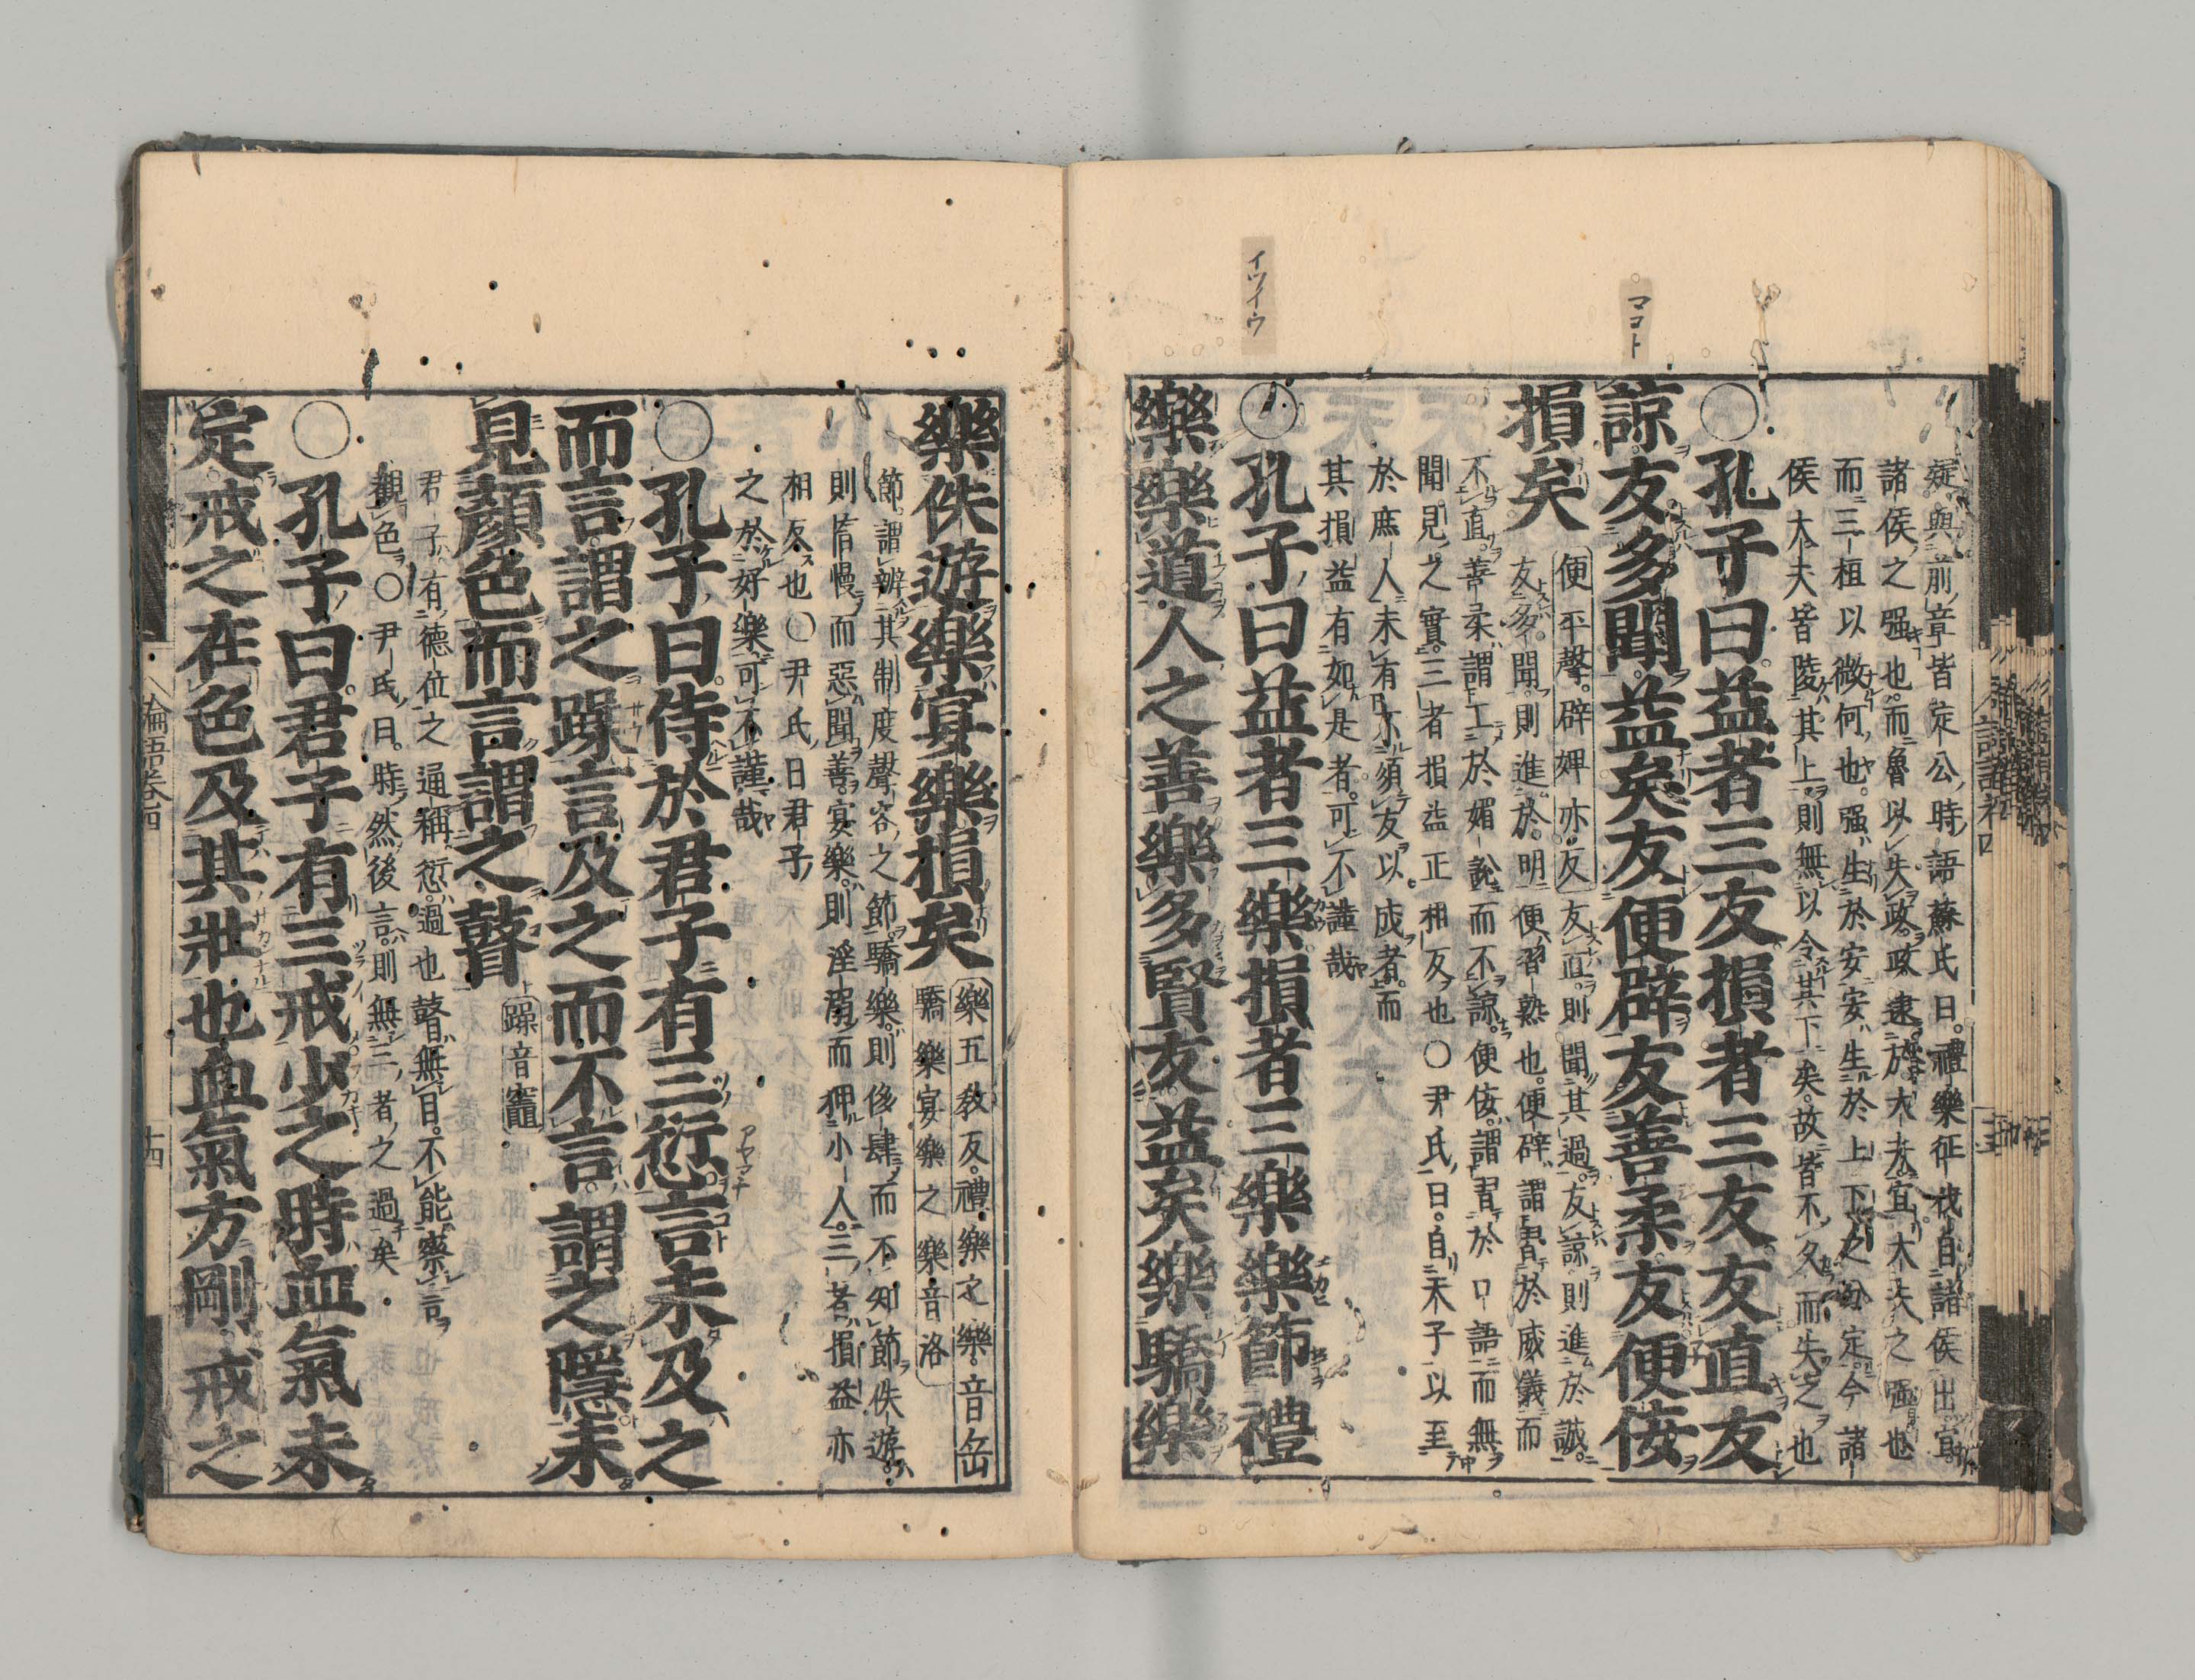 疑與前章皆定公時語蘇氏曰禮樂征伐自諸侯出宜
諸侯之强也而魯以失政政逮於大夫宜大夫之强也
而三桓以微何也强生於安安生於上下之分定今諸
侯大夫皆陵其上則無以令其下矣故皆不久而失之也
○孔子曰益者三友損者三友友直友
諒友多聞益矣友便辟友善柔友便佞
損矣
便平聲辟婢亦反
友直則聞其過友諒則進於誠
友多聞則進於明便習熟也便辟謂習於威儀而
不直善柔謂工於媚說而不諒便佞謂習於口語而無
聞見之實三者損益正相反也○尹氏曰自天子以至
於庶人未有不須友以成者而
其損益有如是者可不謹哉
○孔子曰益者三樂損者三樂樂節禮
樂樂道人之善樂多賢友益矣樂驕樂
マコト
イツイウ
樂佚遊樂宴樂損矣
樂五教反禮樂之樂音岳
驕樂宴樂之樂音洛
節謂辨其制度聲容之節驕樂則侈肆而不知節佚遊
則惰慢而惡聞善宴樂則淫溺而狎小人三者損益亦
相反也○尹氏曰君子
之於好樂可不謹哉
○孔子曰侍於君子有三愆言未及之
而言謂之躁言及之而不言謂之隱未
見顏色而言謂之瞽
躁音竈
君子有德位之通稱愆過也瞽無目不能察言
觀色○尹氏曰時然後言則無三者之過矣
○孔子曰君子有三戒少之時血氣未
定戒之在色及其壯也血氣方剛戒之
論語卷四
十四